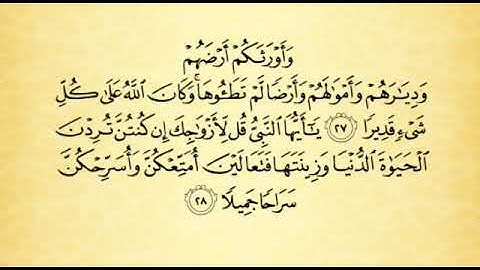 وَأَوْرَثَكُمْ أَرْضَهُمْ
وَدِيَٰرَهُمْ وَأَمْوَٰلَهُمْ وَأَرْضًا لَّمْ تَطَـُٔوهَا ۚ وَكَانَ ٱللَّهُ عَلَىٰ كُلِّ
شَىْءٍ قَدِيرًا ٢٧ يَٰٓأَيُّهَا ٱلنَّبِىُّ قُل لِّأَزْوَٰجِكَ إِن كُنتُنَّ تُرِدْنَ
ٱلْحَيَوٰةَ ٱلدُّنْيَا وَزِينَتَهَا فَتَعَالَيْنَ أُمَتِّعْكُنَّ وَأُسَرِّحْكُنَّ
سَرَاحًا جَمِيلًا ٢٨